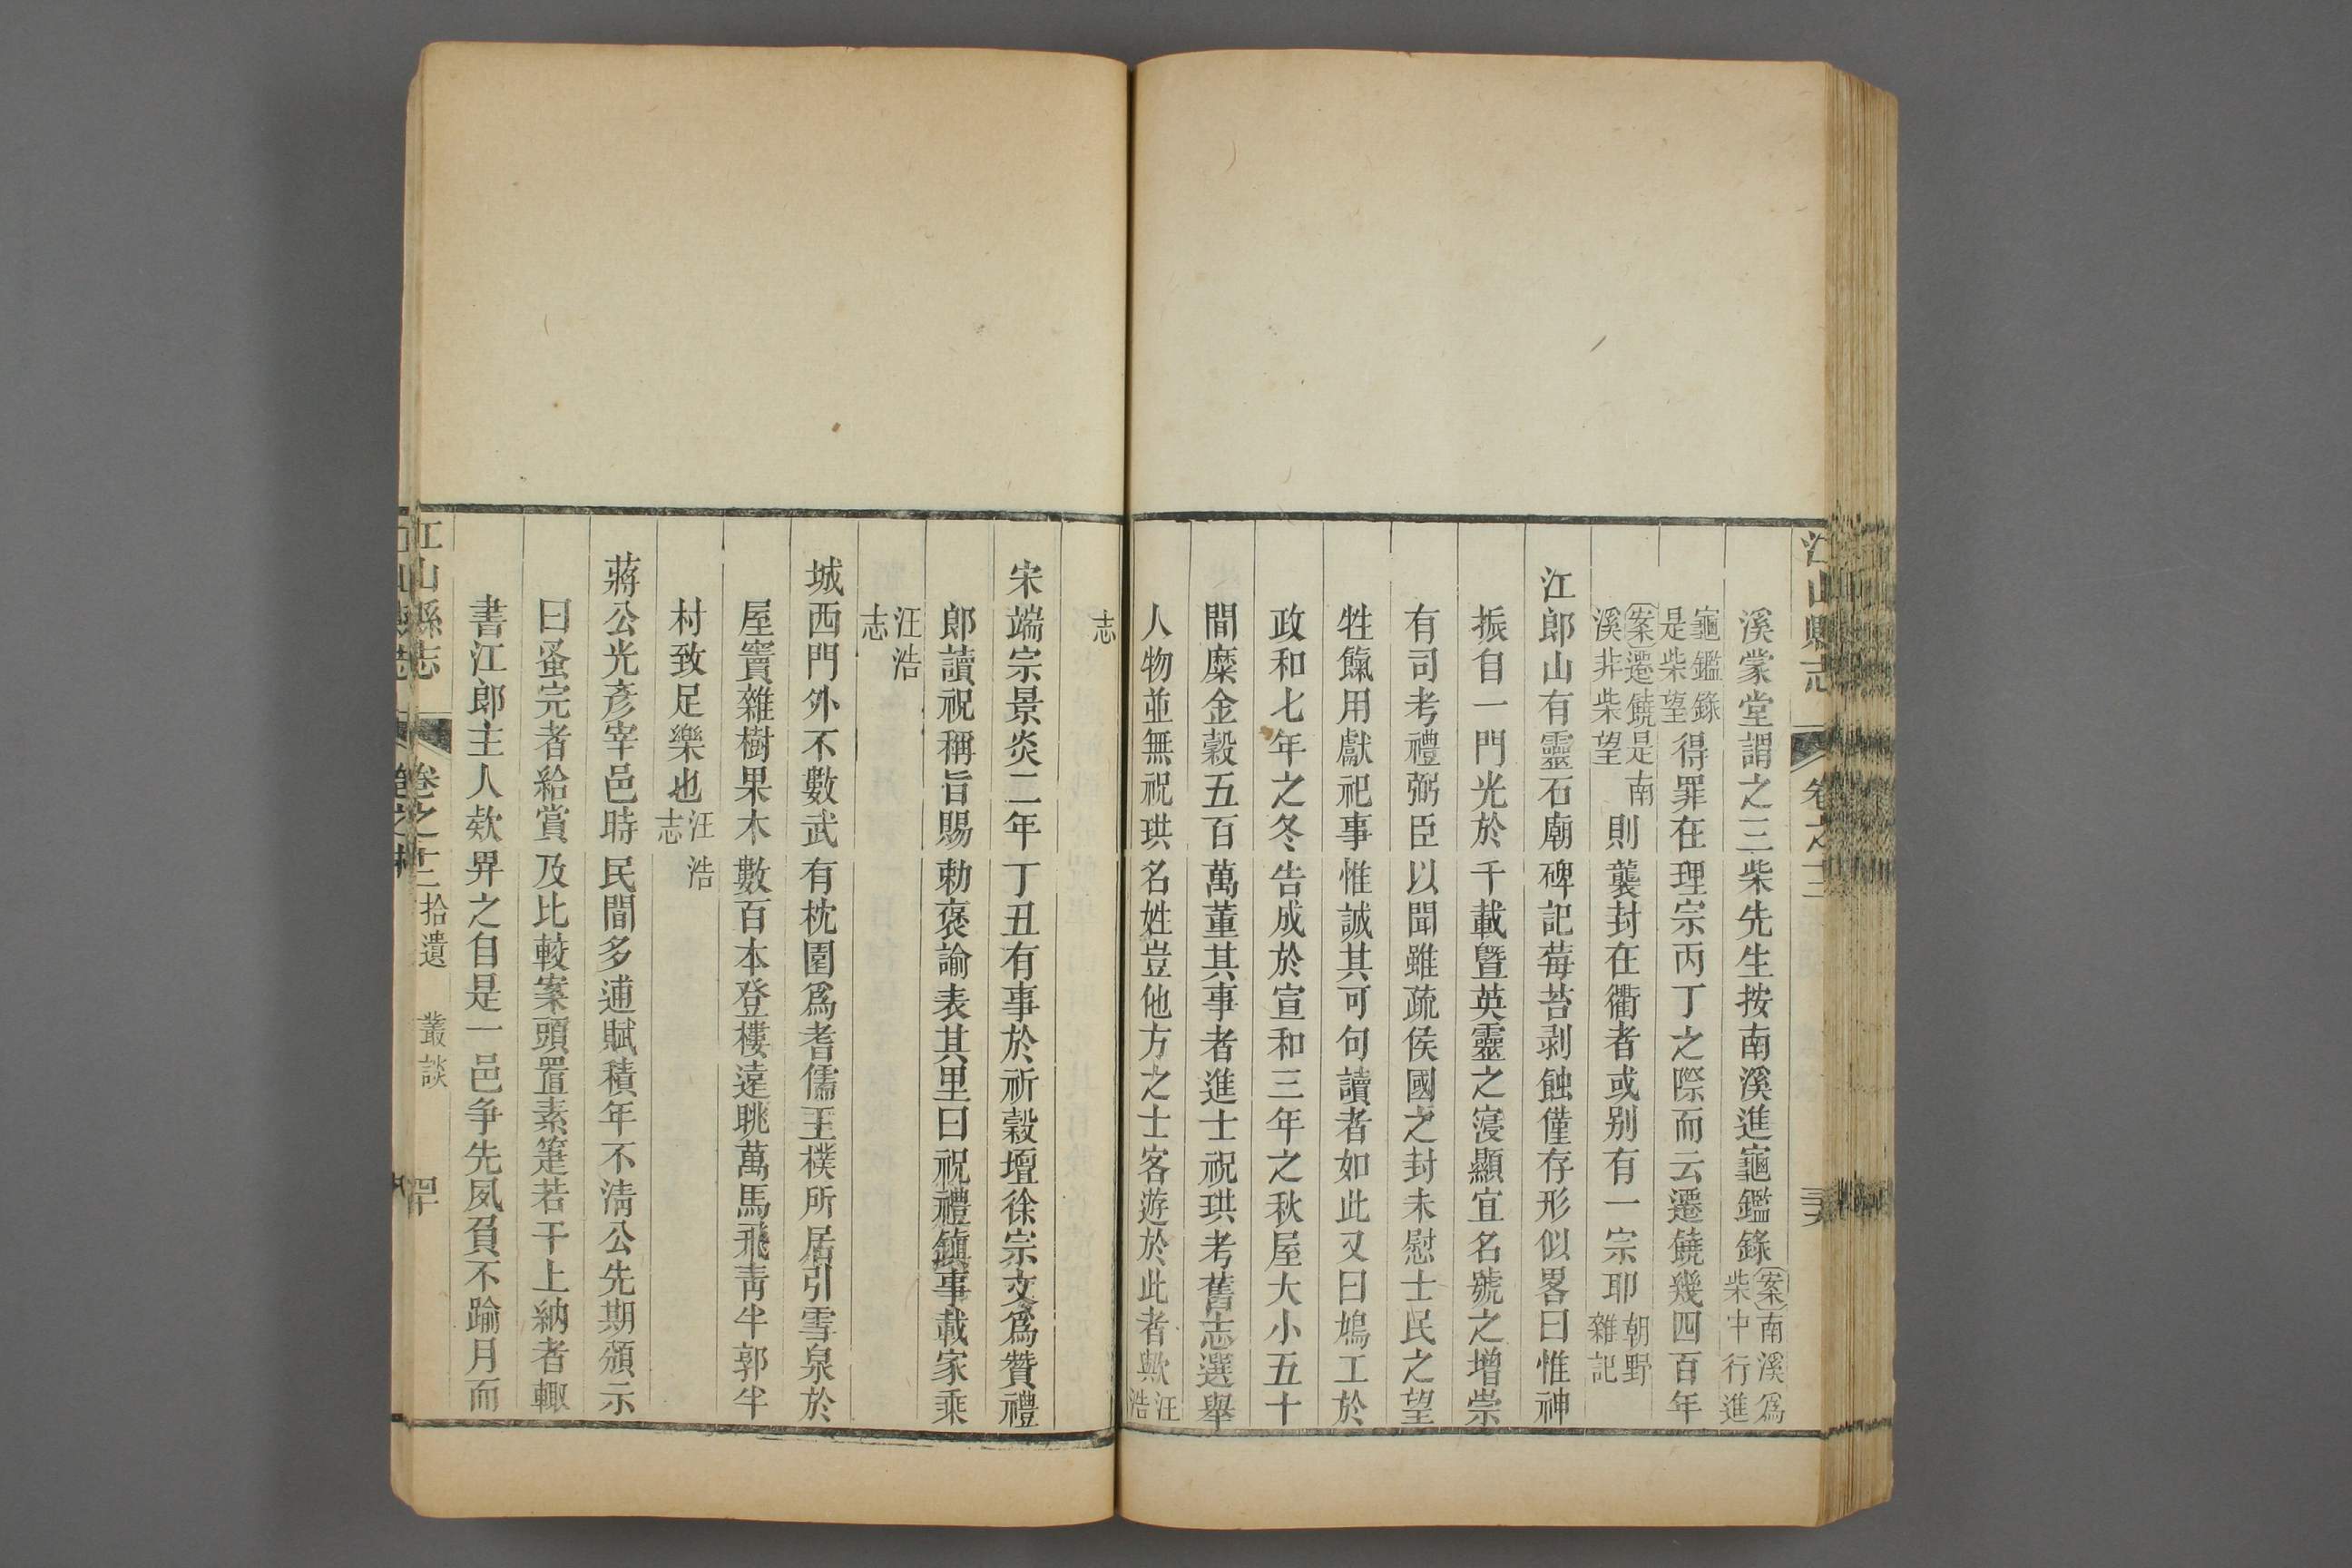 江山縣志
卷之十二
溪蒙堂謂之三柴先生按南溪進龜鑑錄案南溪爲柴中行進
龜鑑錄是柴望得罪在理宗丙丁之際而云遷饒幾四百年
案遷饒是南溪非柴望則襲封在衢者或别有一宗耶朝野雜記
江郎山有靈石廟碑記莓苔剥蝕僅存形似畧曰惟神
振自一門光於千載曁英靈之寖顯宜名號之增崇
有司考禮弼臣以聞雖疏侯國之封未慰士民之望
牲餼用獻祀事惟誠其可句讀者如此又曰鳩工於
政和七年之冬告成於宣和三年之秋屋大小五十
間糜金穀五百萬董其事者進士祝珙考舊志選舉
人物並無祝珙名姓豈他方之士客遊於此者歟汪浩
志
宋端宗景炎二年丁丑有事於祈穀壇徐宗文爲贊禮
郎讀祝稱旨賜勅褒諭表其里曰祝禮鎮事載家乘
汪浩志
城西門外不數武有枕園爲耆儒王樸所居引雪泉於
屋竇雜樹果木數百本登樓遠眺萬馬飛靑半郭半
村致足樂也汪浩志
蔣公光彥宰邑時民間多逋賦積年不淸公先期頒示
曰蚤完者給賞及比較案頭置素箑若干上納者輙
書江郎主人欵畀之自是一邑争先夙負不踰月而
江山縣志
卷之十二 拾遺 叢談